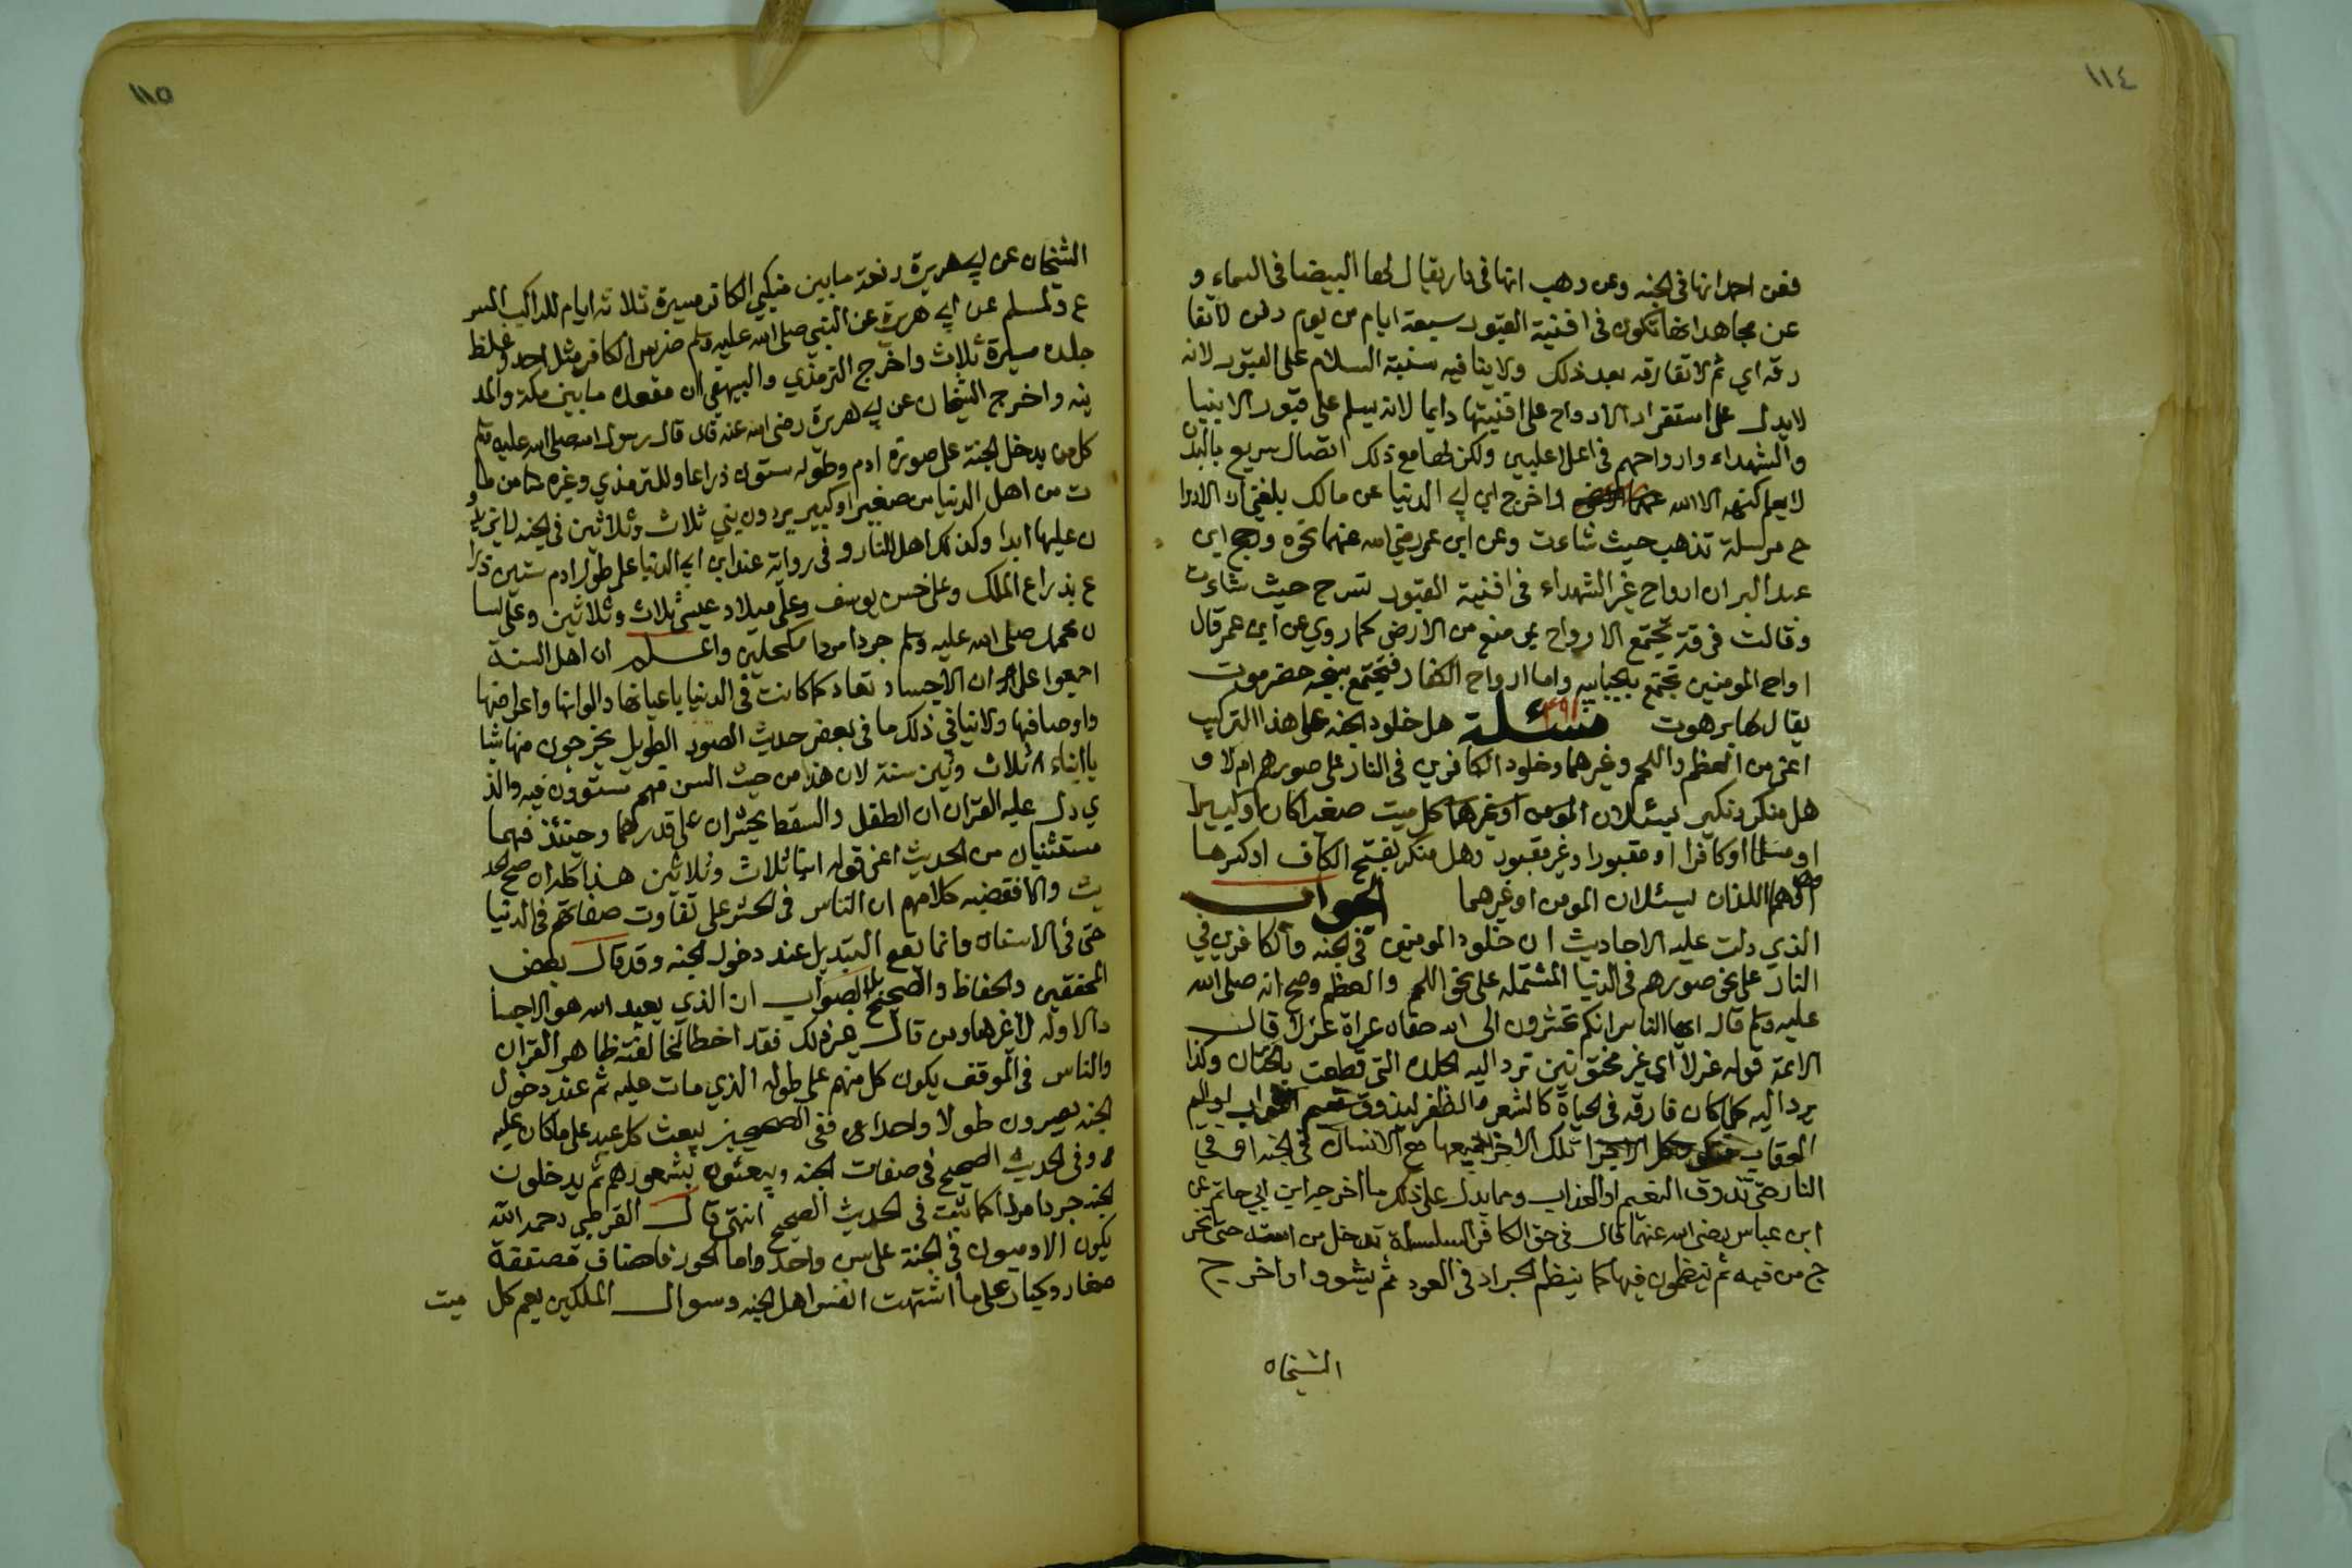 ١١٤
فعن احمد انها في الجنه وعن وهب انها في دار يقال لها البيضا في السماء و
عن مجاهد انها تكون في افنية القبور سبعة ايام من يوم دفن لا تفا
رقه اي ثم لا تفارقه بعد ذلك ولا ينافيه سنية السلام على القبور لانه
لا يدل على استقرار الارواح على افنيتها دايما لانه يسلم على قبور الانبيا
والشهداء وارواحهم في اعلا عليين ولكن لها مع ذلك اتصال سريع بالبدن
لا يعلم كنهه الا الله واخرج ابن ابي الدنيا عن مالك بلغني ان الاروا
ح مرسلة تذهب حيث شاءت وعن ابن عمر رضي الله عنهما نحوه ورجح ابن
عبد البر ان ارواح غير الشهداء في افنية القبور تسرح حيث شاءت
وقالت فرقة تجتمع الارواح بموضع من الارض كما روي عن ابن عمر قال
ارواح المومنين تجتمع بالجابيه واما ارواح الكفار فتجتمع بسبخه حضرموت
يقال لها برهوت مسئلة هل خلود الجنه على هذا التركيب
اعني من العظم واللحم وغيرهما وخلود الكافرين في النار على صورهم ام لا و
هل منكر ونكير يسئلان المومن او غيرهما كل ميت صغيرا كان او كبيرا
او مسلما او كافرا او مقبورا وغير مقبور وهل منكر بفتح الكاف او كسرها
وهل هما اللذان يسئلان المومن او غيرهما الجواب
الذي دلت عليه الاحاديث ان خلود المومنين في الجنه والكافرين في
النار على نحو صورهم في الدنيا المشتمله على نحو اللحم والعظم وصح انه صلى الله
عليه وسلم قال ايها الناس انكم تحشرون الى الله حفاه عراة غرلا قال
الائمة قوله غرلا اي غير مختونين ترد اليه الجلده التي قطعت بالختان وكذا
يرد اليه كلما كان فارقه في الحياة كالشعر والظفر ليذوق نعيم الثواب او اليم
العقاب تلك الاجزا جميعها مع الانسان في الجنه او في
النار حتى تذوق النعيم او العذاب ومما يدل على ذلك ما اخرجه ابن ابي حاتم عن
ابن عباس رضي الله عنهما قال في حق الكافر السلسلة تدخل من استه حتى تخر
ج من فيه ثم ينظمون فيها كما ينظم الجراد في العود ثم يشوو واخرج
الشيخان
١١٥
الشيخان عن ابي هريرة رفعه ما بين منكبي الكافر مسيرة ثلاثة ايام للراكب المسر
ع ولمسلم عن ابي هريرة عن النبي صلى الله عليه وسلم ضرس الكافر مثل احد وغلظ
جلده مسيرة ثلاث واخرج الترمذي والبيهقي ان مقعده ما بين مكة والمد
ينه واخرج الشيخان عن ابي هريرة رضي الله عنه قال قال رسول الله صلى الله عليه وسلم
كل من يدخل الجنة على صورة ادم وطوله ستون ذراعا وللترمذي وغيره من ما
ت من اهل الدنيا من صغير او كبير يردون بني ثلاث وثلاثين في الجنه لا يزيدو
ن عليها ابدا وكذلك اهل النار وفي رواية عند ابن ابي الدنيا على طول ادم ستين ذرا
ع بذراع الملك وعلى حسن يوسف وعلى ميلاد عيسى ثلاث وثلاثين وعلى لسا
ن محمد صلى الله عليه وسلم جردا مردا مكحلين واعلم ان اهل السنة
اجمعوا على ان الاجساد تعاد كما كانت في الدنيا باعيانها والوانها واعراضها
واوصافها ولا ينافي ذلك ما في بعض حديث الصور الطويل يخرجون منها شبا
با ابناء ثلاث وثلثين سنة لان هذا من حيث السن فهم مستوون فيه والذ
ي دل عليه القران ان الطفل والسقط يحشران على قدرهما وحينئذ فهما
مستثنيان من الحديث اعني قوله ابنا ثلاث وثلاثين هذا كله ان صح الحد
يث والا فقضيه كلامهم ان الناس في الحشر على تفاوت صفاتهم في الدنيا
حتى في الاسنان وانما يقع التبديل عند دخول الجنه وقد قال بعض
المحققين والحفاظ والصحيح بل الصواب ان الذي يعيده الله هو الاجسا
د الاوله لا غيرها ومن قال غير ذلك فقد اخطا لمخالفته ظاهر القران
والناس في الموقف يكون كل منهم على طوله الذي مات عليه ثم عند دخول
الجنه يصيرون طولا واحدا ففي الصحيح يبعث كل عبد على ما كان عليه
وفي الحديث الصحيح في صفات الجنه ويبعثون بشعورهم ثم يدخلون
الجنه جردا مردا كما ثبت في الحديث الصحيح انتهى قال القرطبي رحمه الله
يكون الادميون في الجنة على سن واحد واما الحور فاصناف مصنفة
صغار وكبار على ما اشتهت انفس اهل الجنه وسوال الملكين يعم كل ميت